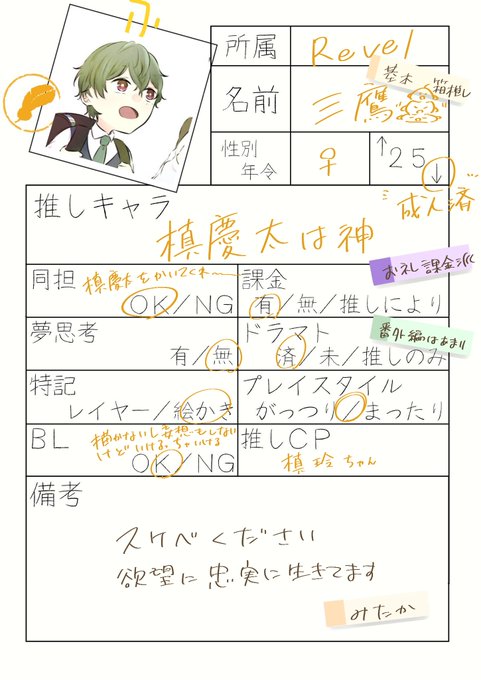 所属
Revel
名前
三鷹
基本
箱推し
性別
年令
♀
↑25↓
成人済
推しキャラ
槙慶太は神
同担
槙慶太をかいてくれ〜
OK/NG
課金
有/無/推しにより
お礼課金派
夢思考
有/無
ドラマト
済/未/推しのみ
番外編はあまり
特記
レイヤー/絵かき
プレイスタイル
がっつり/まったり
BL
描かないし妄想もしない
けどいける。ちゃいける
OK/NG
推しCP
槙玲ちゃん
備考
スケベください
欲望に忠実に生きてます
みたか